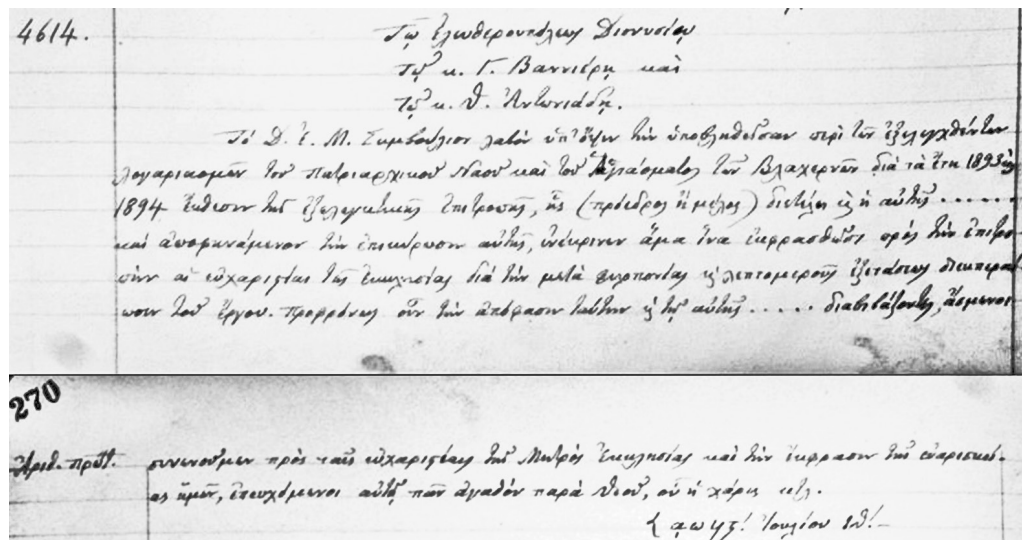 4614.
Τῷ Ἐλευθερουπόλεως Διονυσίῳ
Τῷ κ. Γ. Βαννιέρῃ καὶ
Τῷ κ. Θ. Ἀντωνιάδῃ.
Τὸ Δ. Ἐ. Μ. Συμβούλιον λαβὸν ὑπ' ὄψιν τὴν ὑποβληθεῖσαν περὶ τῶν ἐξελεγχθέντων
λογαριασμῶν τοῦ Πατριαρχικοῦ Ναοῦ καὶ τοῦ Ἁγιάσματος τῶν Βλαχερνῶν διὰ τὰ ἔτη 1893 καὶ
1894 ἔκθεσιν τῆς ἐξελεγκτικῆς ἐπιτροπῆς, ἧς (πρόεδρος ἢ μέλος) διετέλει καὶ ἡ αὐτῆς ......
καὶ ἀποφηνάμενον τὴν ἐπικύρωσιν αὐτῆς, ἐνέκρινεν ἅμα ἵνα ἐκφρασθῶσι πρὸς τὴν ἐπιτρο
πὴν αἱ εὐχαριστίαι τῆς Ἐκκλησίας διὰ τὴν μετὰ φιλοπονίας καὶ λεπτομεροῦς ἐξετάσεως διεκπεραί
ωσιν τοῦ ἔργου. Προφρόνως οὖν τὴν ἀπόφασιν ταύτην καὶ τῇ αὐτῆς ..... διαβιβάζοντες, ἄσμενοι
270
Ἀριθ. πρωτ.
συνενοῦμεν πρὸς ταῖς εὐχαριστίαις τῆς Μητρὸς Ἐκκλησίας καὶ τὴν ἔκφρασιν τῆς εὐαρεσκεί-
ας ἡμῶν, ἐπευχόμενοι αὐτῇ πᾶν ἀγαθὸν παρὰ Θεοῦ, οὗ ἡ χάρις κτλ.
͵αωϟϛʹ Ἰουλίου